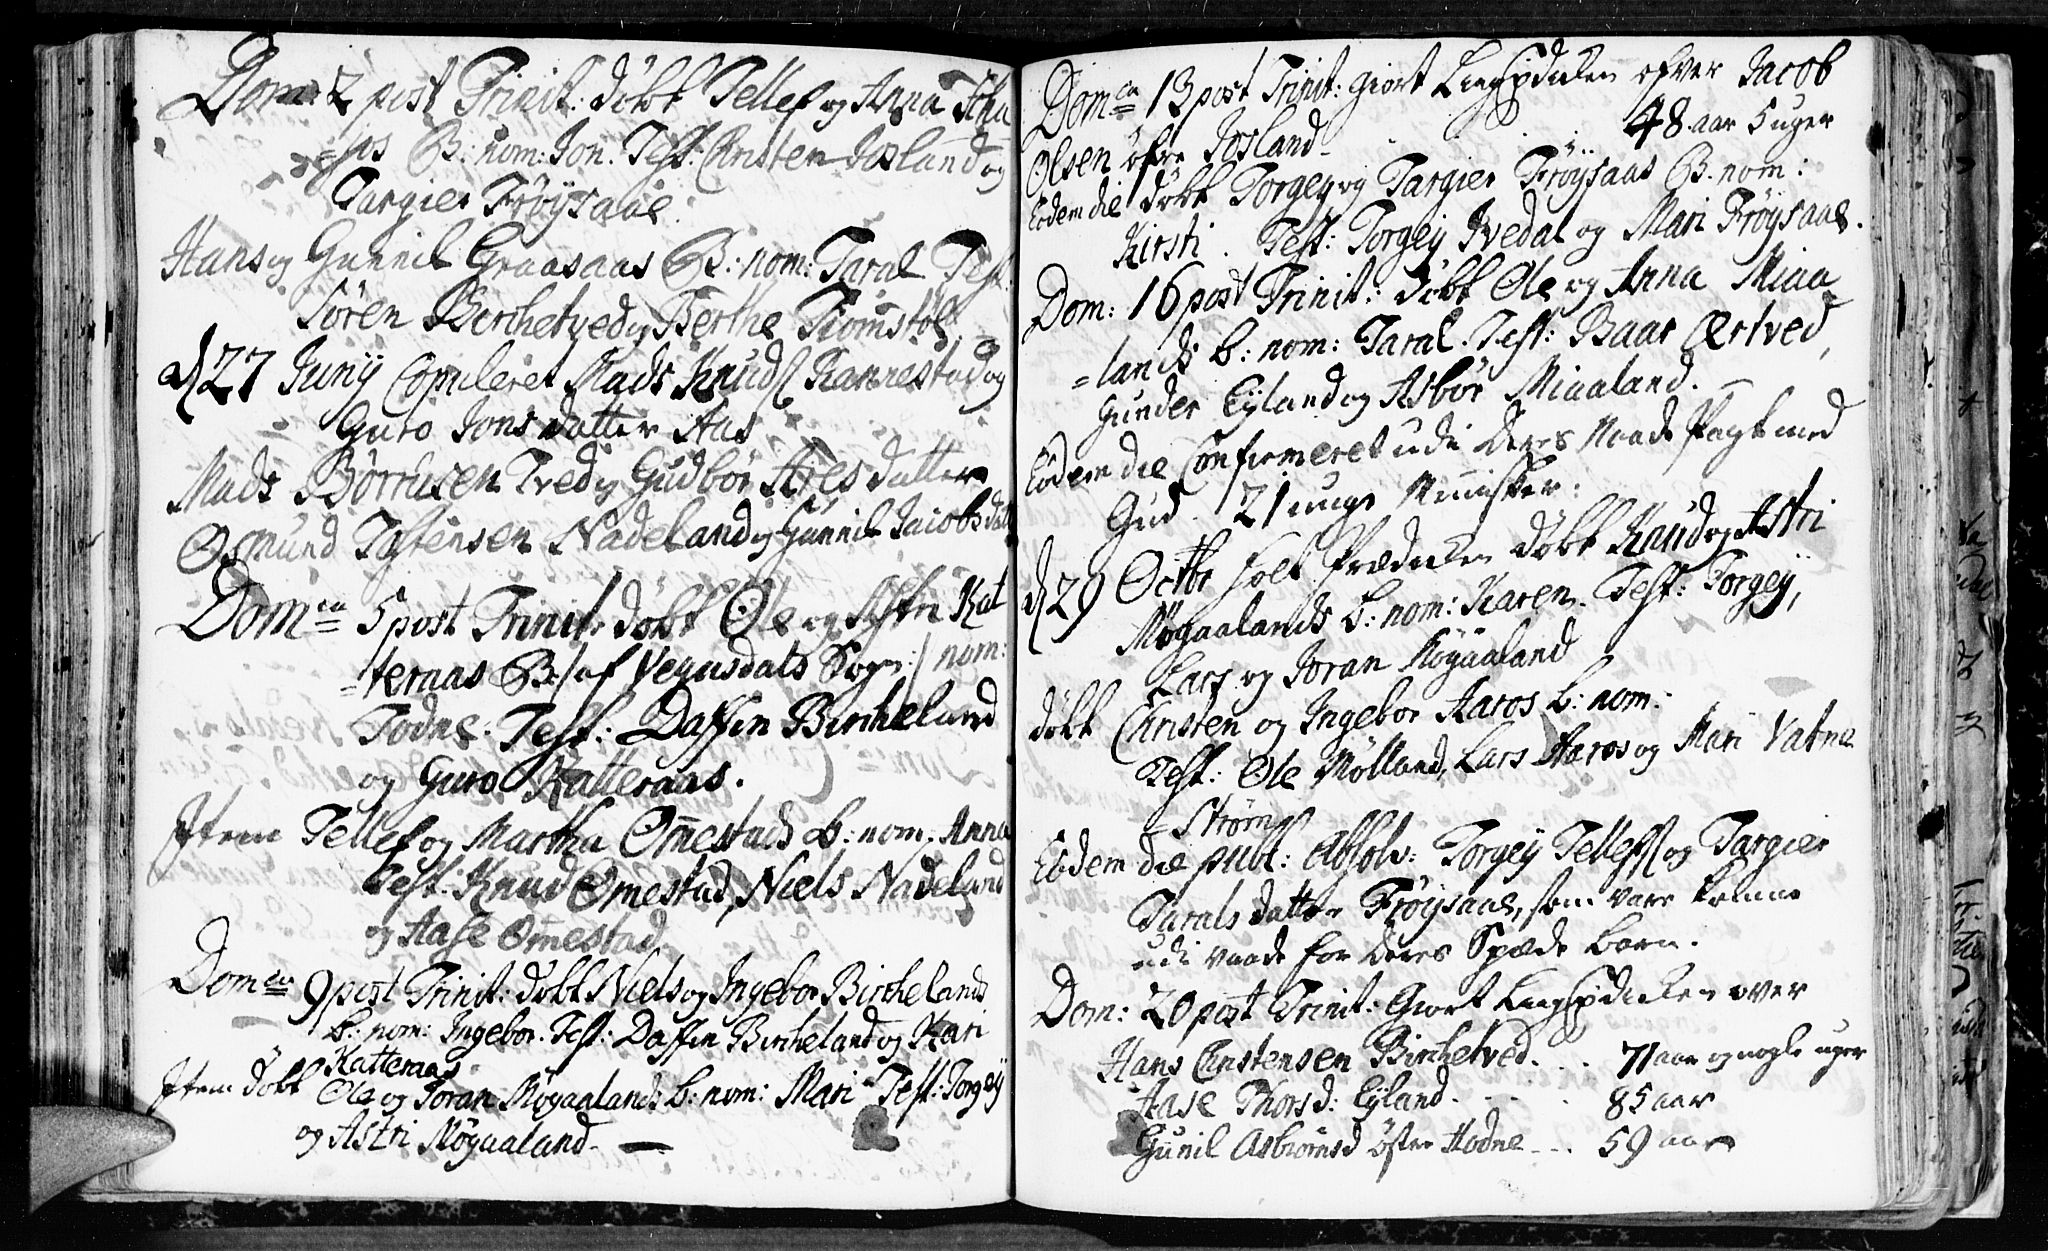 Dom: 2 post Trinit: döbt Tellef og Anna
B: nom: Jon. Test: Christen Josland og
Targier Fröysaas.
Hans og Gunnil Graasaas B: nom: Taral Test:
Sören Berchetved og Berthe Tiomstöl
d 27 Junij Copuleret Mads Knuds Kannestad og
Guro Jons datter Aas
Mads Börrusen Tved og Gudbör Ases datter
Osmund Tostensen Nadeland og Gunnil Jacobsdat
Domca 5 post Trinit: döbt Ole og Astri Kat
=teraas B: /af Vegusdals Sogn:/ nom:
Todne. Test: Daffin Bircheland
og Guro Katteraas.
Item Tellef og Martha Omestads b: nom: Anna
Test: Knud Omestad, Niels Nadeland
og Aase Omestad.
Domca 9 post Trinit: döbt Niels og Ingebor Birchelands
b: nom: Ingebor. Test: Daffin Bircheland og Kari
Katteraas
Item döbt Ole og Joran Møgaalands b: nom: Mari Test: Torgej
og Astri Møgaaland.
Domca 13 post Trinit: giort Liigprædiken ofver Jacob
Olsen öfre Josland 48 aar 5 uger
Eodem die döbt Torgej og Targier Fröysaas B. nom:
Kirsti. Test: Torgej Ivedal og Mari Fröysaas.
Dom: 16 post Trinit: döbt Ole og Anna Miaa
=lands b: nom: Taral. Test: Baar Ærtved,
Gunder Eyland og Asbör Miaaland.
Eodem die Confirmeret udi deres Naade Pagt med
Gud 21 unge Mennisker:
d 29 Octbr holt Prædiken döbt Knud og Astri
Møgaalands b: nom: Karen. Test: Torgej,
Lars og Joran Møgaaland
döbt Christen og Ingebor Aaros b: nom:
Test: Ole Mølland, Lars Aaros og Mari Vatne
Strøm
Eodem die publ: Absolv: Torgej Tellefs og Targier
Tarals datter Fröysaas, som vare komne
udi vaade for deres Spæde barn.
Dom: 20 post Trinit: Giort Liigprædiken over
Hans Christensen Birchetved . . . 71 aar og nogle uger
Aase Thorsd: Eyland . . . . 85 aar
Gunil Asbiørnsd østre Hodne . . . 59 aar